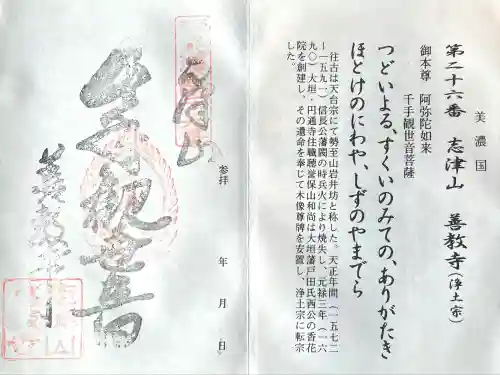 美濃国
第二十六番 志津山 善教寺(浄土宗)
御本尊 阿弥陀如来
千手観世音菩薩
つどいよる、すくいのみての、ありがたき
ほとけのにわや、しずのやまでら
往古は天台宗にて勢至山岩井坊と称した。天正年間(一五七二
〜一五九一)信長公藩閥の時兵火により焼失し、元禄三年(一六
九〇)大垣・円通寺住職聴誉保山和尚は大垣藩戸田氏西公の香花
院を創建し、その遺命を奉じて木像尊牌を安置し、浄土宗に転宗
した。
参拝 年 月 日
千手観世音
善教寺